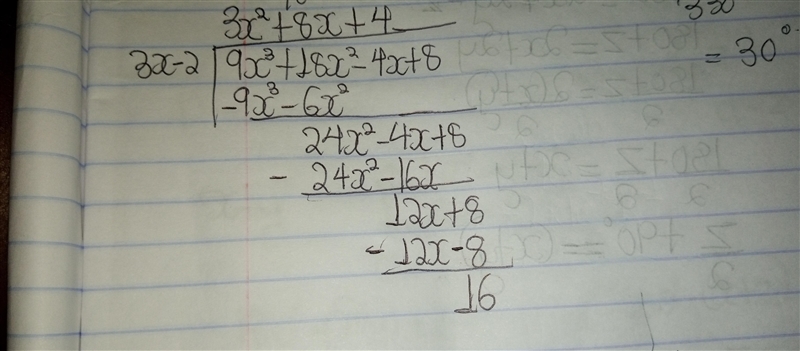 3x² + 8x + 4
3x - 2 | 9x³ + 18x² - 4x + 8
-9x³ - 6x²
24x² - 4x + 8
- 24x² - 16x
12x + 8
- 12x - 8
16
= 30°